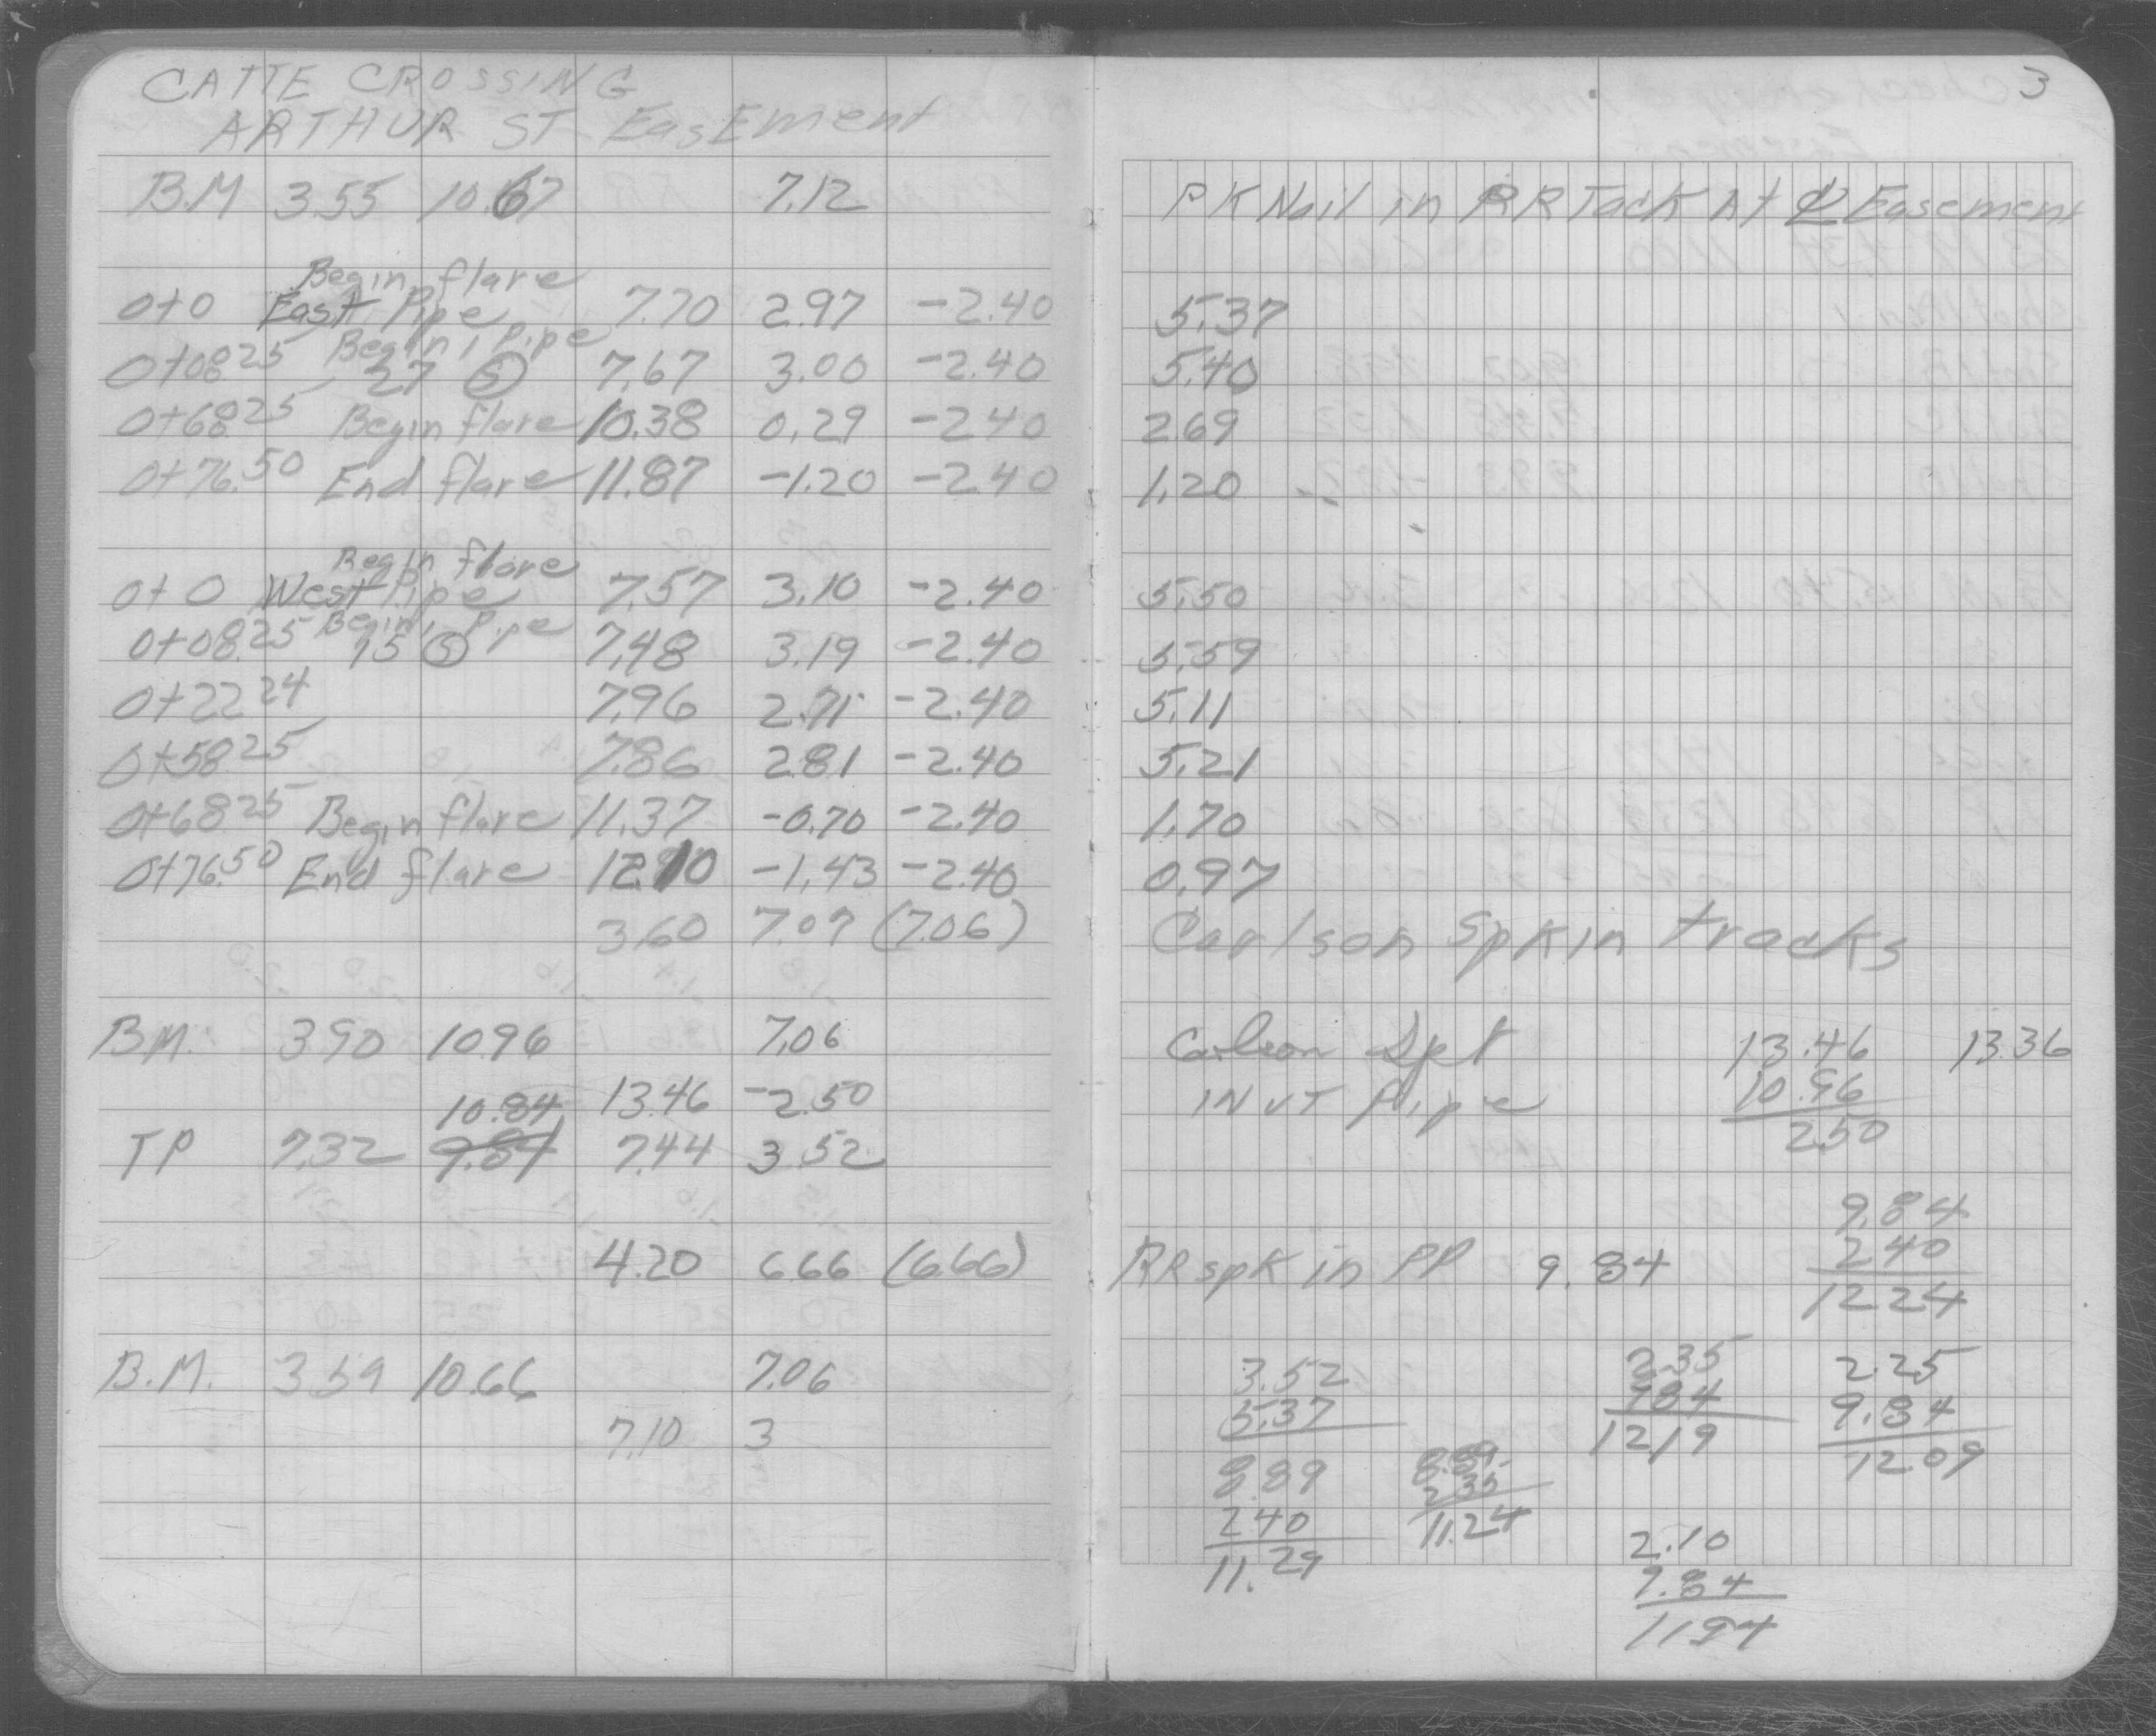 CATTE CROSSING
ARTHUR ST EasEment
3
B.M 3.55 10.67 7.12 PK Nail in RR Tack At ℄ Easement
Begin flare
0+0 East Pipe 7.70 2.97 -2.40 5.37
Begin, pipe
0+08.25 27 (5) 7.67 3.00 -2.40 5.40
0+68.25 Begin flare 10.38 0.29 -2.40 2.69
0+76.50 End flare 11.87 -1.20 -2.40 1.20
Begin flare
0+0 West Pipe 7.57 3.10 -2.40 5.50
Begin, Pipe
0+08.25 15 (5) 7.48 3.19 -2.40 5.59
0+22 24 7.96 2.71 -2.40 5.11
0+58.25 7.86 2.81 -2.40 5.21
0+68.25 Begin flare 11.37 -0.70 -2.40 1.70
0+76.50 End flare 12.10 -1.43 -2.40 0.97
3.60 7.07 (7.06) Carlson Spk in tracks
BM. 3.90 10.96 7.06 Carlson Spk 13.46 13.36
10.84 13.46 -2.50 INVT Pipe 10.96
2.50
TP 7.32 9.84 7.44 3.52
9.84
2.40
4.20 6.66 (6.66) RR spk in PP 9.84
12.24
B.M. 3.59 10.66 7.06
3.52 2.35 2.25
5.37 9.84 9.84
7.10 3
12.19 12.09
8.89 8.89
2.40 2.35
11.29 11.24
2.10
9.84
11.94